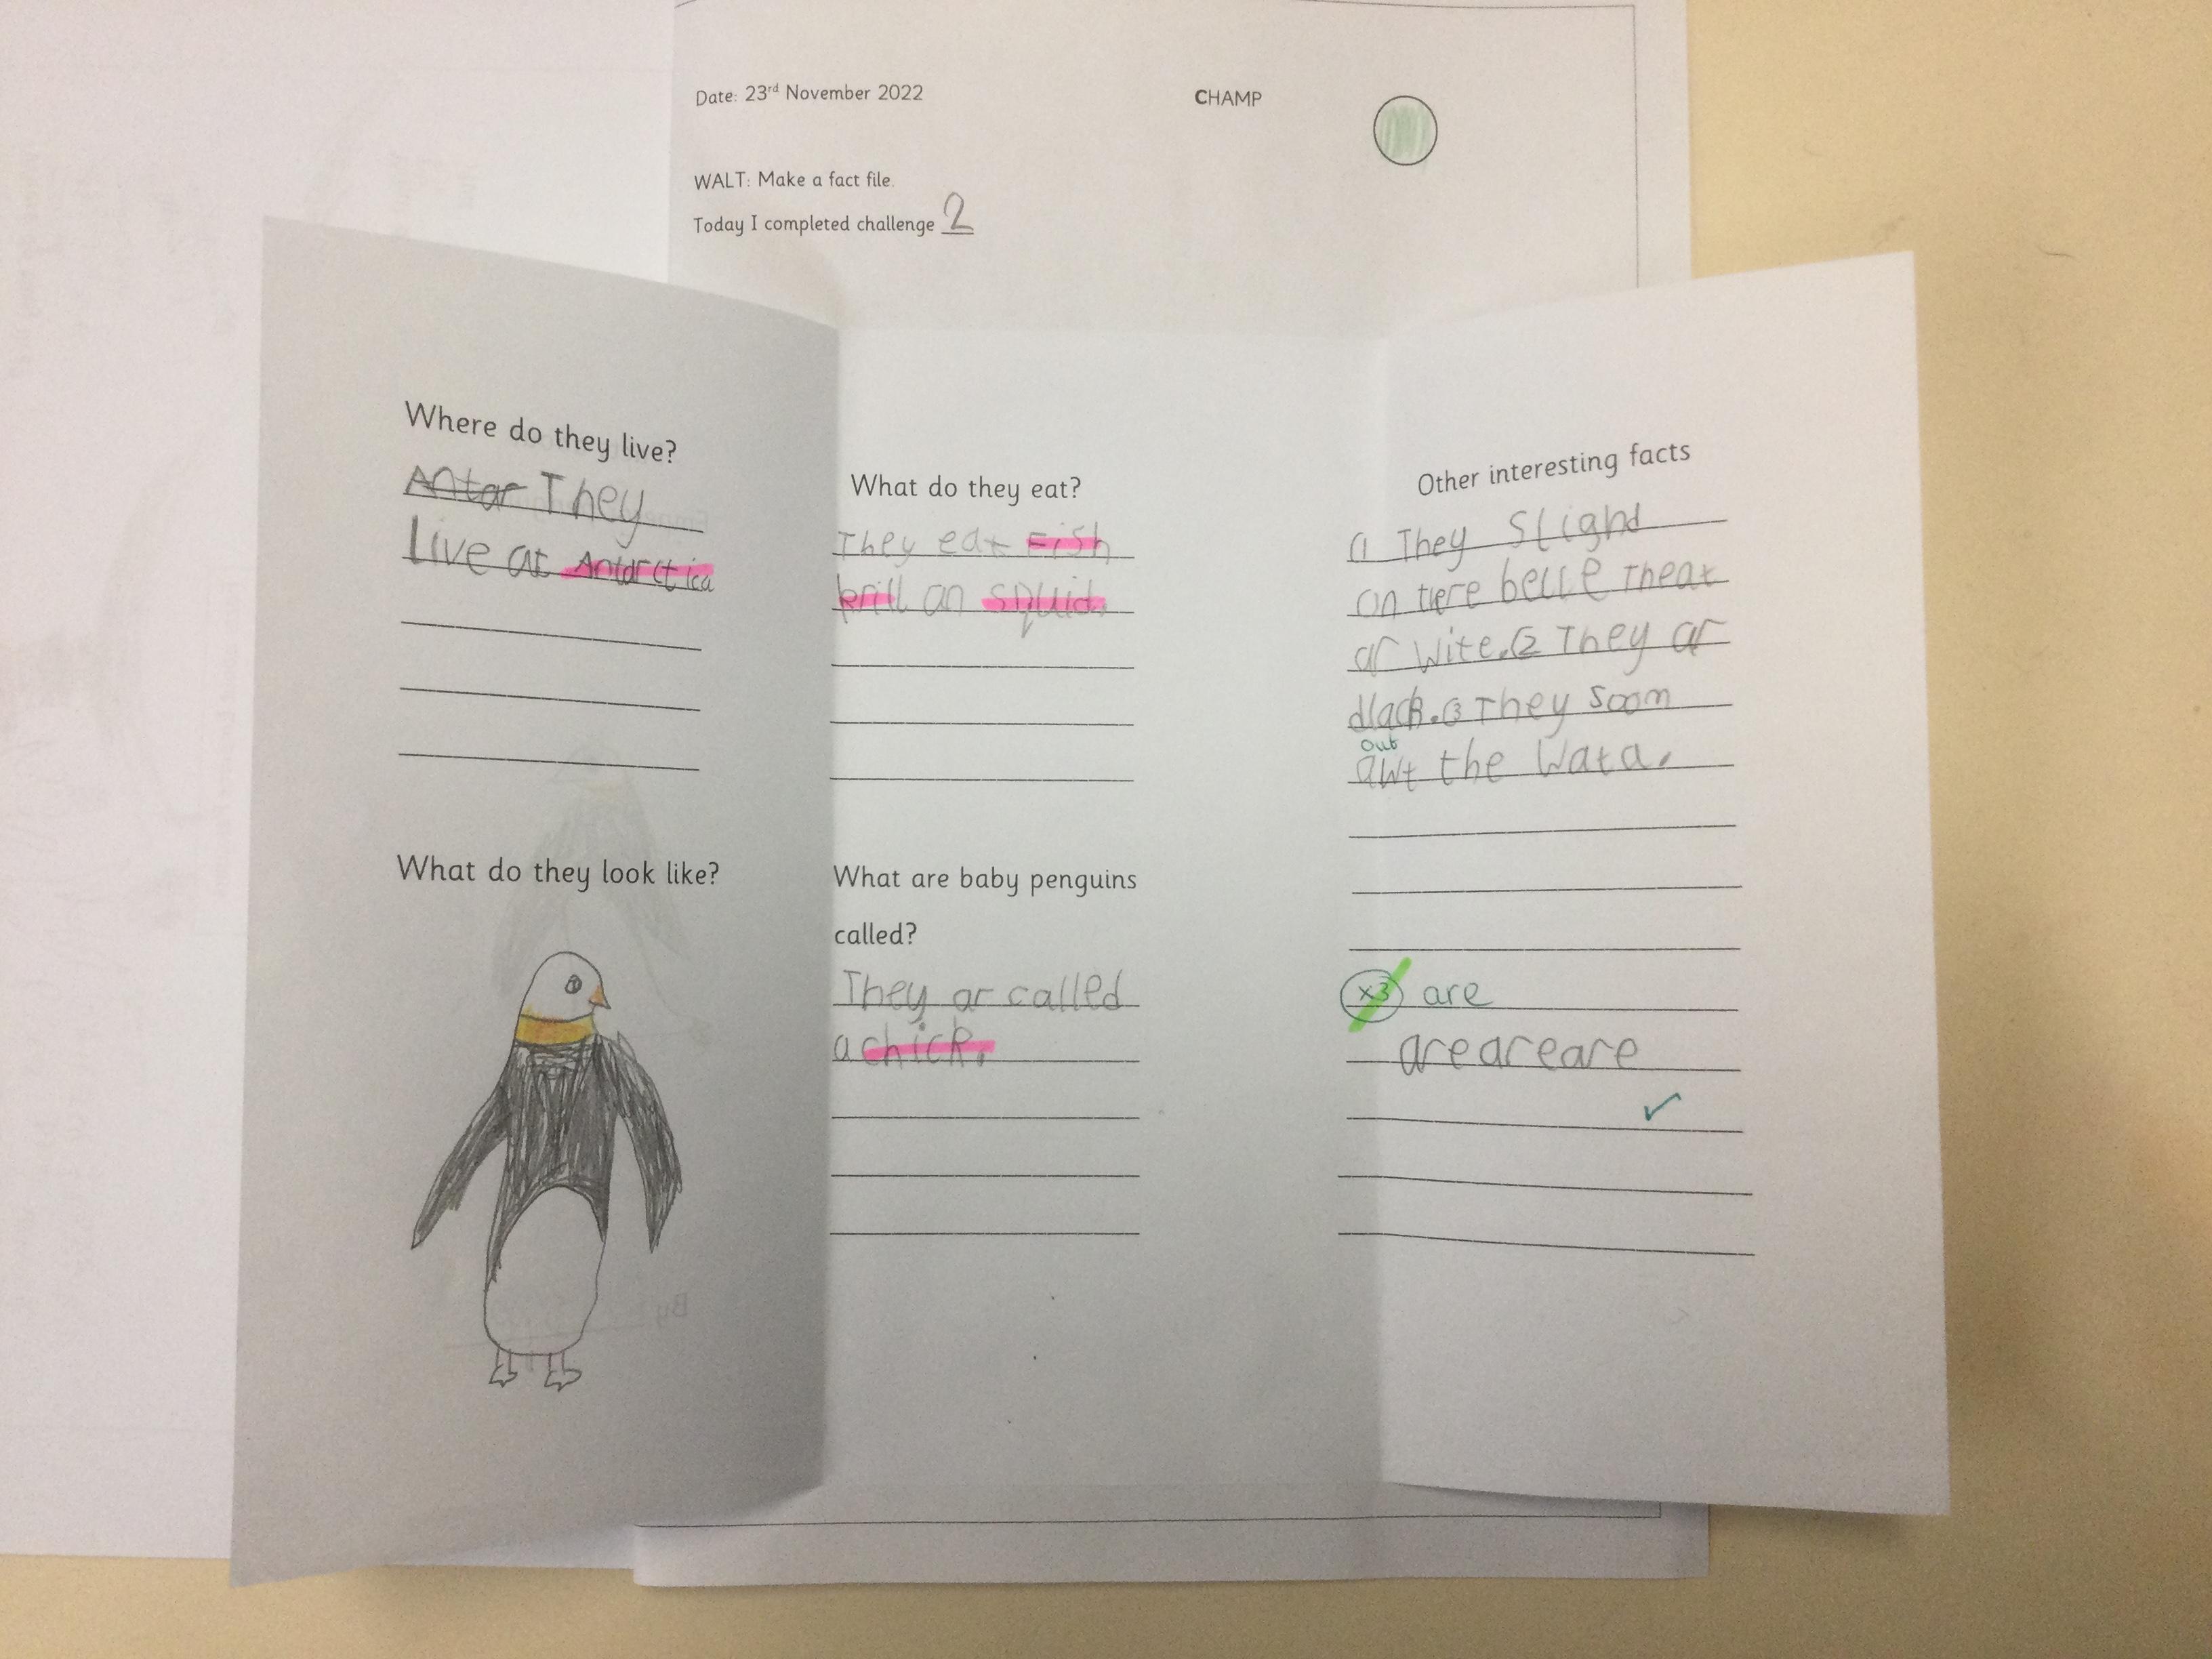 Date: 23rd November 2022
CHAMP
WALT: Make a fact file.
Today I completed challenge 2
Where do they live?
Antar They
Live at Antarctica
What do they look like?
What do they eat?
They eat Fish
krill an squid.
What are baby penguins
called?
They ar called
a chick.
Other interesting facts
1 They Slighd
on there belle Theat
ar wite. 2 They ar
dlack. 3 They Soom
out
awt the Wata.
x3 are
are are are